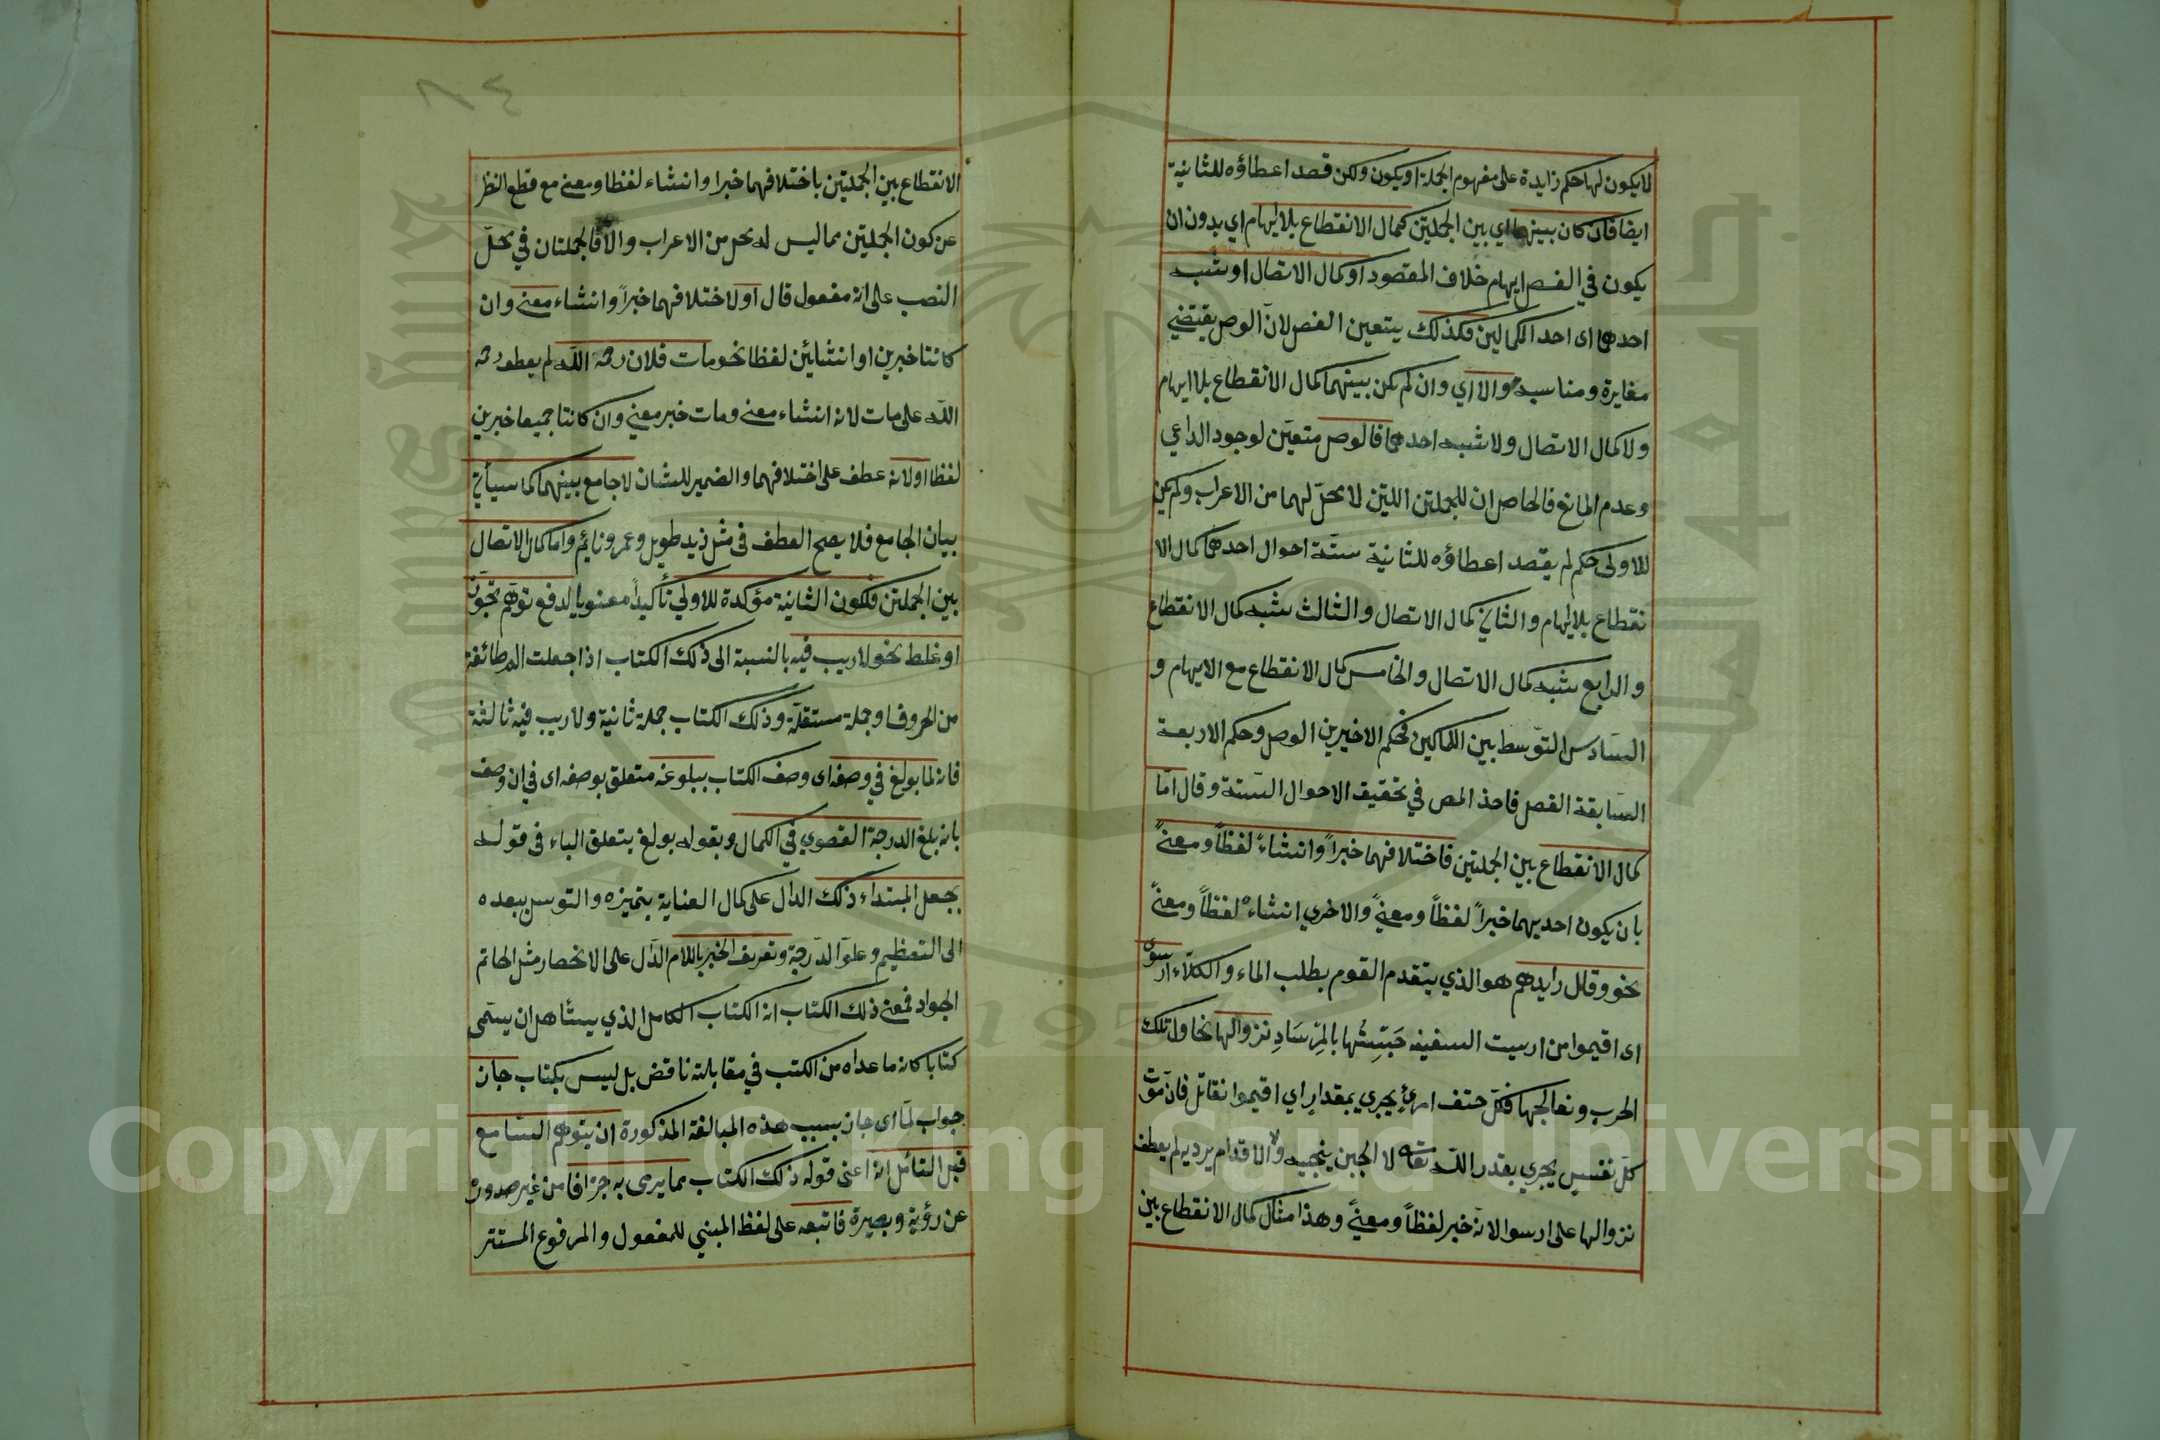 لا يكون لها حكم زايدة على مفهوم الجملة او يكون ولكن قصد اعطاؤه للثانية
ايضا فان كان بينهما اي بين الجملتين كمال الانقطاع بلا ايهام اي بدون ان
يكون في الفصل ايهام خلاف المقصود او كمال الاتصال او شبه
احدهما اى احد الكمالين فكذلك يتعين الفصل لانّ الوصل يقتضي
مغايرة ومناسبة والا اي وان لم يكن بينهما كمال الانقطاع بلا ايهام
ولا كمال الاتصال ولا شبه احدهما فالوصل متعيّن لوجود الداعي
وعدم المانع فالحاصل ان للجملتين اللتين لا محلّ لهما من الاعراب ولم يكن
للاولى حكم لم يقصد اعطاؤه للثانية ستّة احوال احدهما كمال الا
نقطاع بلا ايهام والثاني كمال الاتصال والثالث شبه كمال الانقطاع
والرابع شبه كمال الاتصال والخامس كمال الانقطاع مع الايهام و
السّادس التوّسط بين الكمالين فحكم الاخيرين الوصل وحكم الاربعة
السّابقة الفصل فاخذ المص في تحقيق الاحوال السّتة وقال امّا
كمال الانقطاع بين الجملتين فاختلافهما خبراً وانشاءً لفظاً ومعنىً
بان يكون احديهما خبراً لفظاً ومعنىً والاخرى انشاءً لفظاً ومعنىً
نحو وقال رايدهم هو الذي يتقدم القوم بطلب الماء والكلاء ارسوا
اى اقيموا من ارسيت السفينه حَبَستُها بالمِرْسَادِ نزوالها نحاول تلك
الحرب ونعالجها فكلّ حتف امرئٍ يجري بمقدارٍ اي اقيموا نقاتل فانّ موت
كلّ نفسٍ يجري بقدر اللّه تعالى لا الجبن ينجيه ولا الاقدام يرديه لم يعطف
نزوالها على ارسوا لانّه خبر لفظاً ومعنىً وهذا مثال كمال الانقطاع بين
الانقطاع بين الجملتين باختلافهما خبرا وانشاء لفظا ومعنى مع قطع النظر
عن كون الجملتين مما ليس له محل من الاعراب والّا فالجملتان في محلّ
النصب على انه مفعول قال او لاختلافهما خبراً وانشاء معنى وان
كانتا خبرين او انشائين لفظا نحو مات فلان رحمه اللّه لم يعطف رحمه
اللّه على مات لانه انشاء معنى ومات خبر معني وان كانتا جميعا خبرين
لفظا او لانه عطف على اختلافهما والضمير للشان لا جامع بينهما كما سيأتي
بيان الجامع فلا يصح العطف في مثل زيد طويل وعمرو نائم واما كمال الاتصال
بين الجملتين فلكون الثانية مؤكدة للاولي تأكيداً معنويا لدفع توهّم تجوّز
او غلط نحو لاريب فيه بالنسبة الى ذلك الكتاب اذا جعلت الم طائفة
من الحروف او جملة مستقلّة وذلك الكتاب جملة ثانية ولاريب فيه ثالثة
فانه لما بولغ في وصفه اى وصف الكتاب ببلوغه متعلق بوصفه اى في ان وصف
بانه بلغ الدرجة القصوي في الكمال وبقوله بولغ يتعلق الباء في قوله
بجعل المبتداء ذلك الدال على كمال العناية بتميزه والتوسل ببعده
الى التعظيم وعلوّ الدّرجة وتعريف الخبر باللام الدّال على الانحصار مثل الحاتم
الجواد فمعنى ذلك الكتاب انه الكتاب الكامل الذي يستاهل ان يسمّى
كتابا كانه ما عداه من الكتب في مقابلته ناقص بل ليس بكتاب جاز
جواب لمّا اى جاز بسبب هذه المبالغة المذكورة ان يتوهّم السّامع
قبل التامّل انه اعنى قوله ذلك الكتاب مما يرمى به جزافا من غير صدوره
عن رؤية وبصيرة فاتبعه على لفظ المبني للمفعول والمرفوع المستتر
Copyright © King Saud University